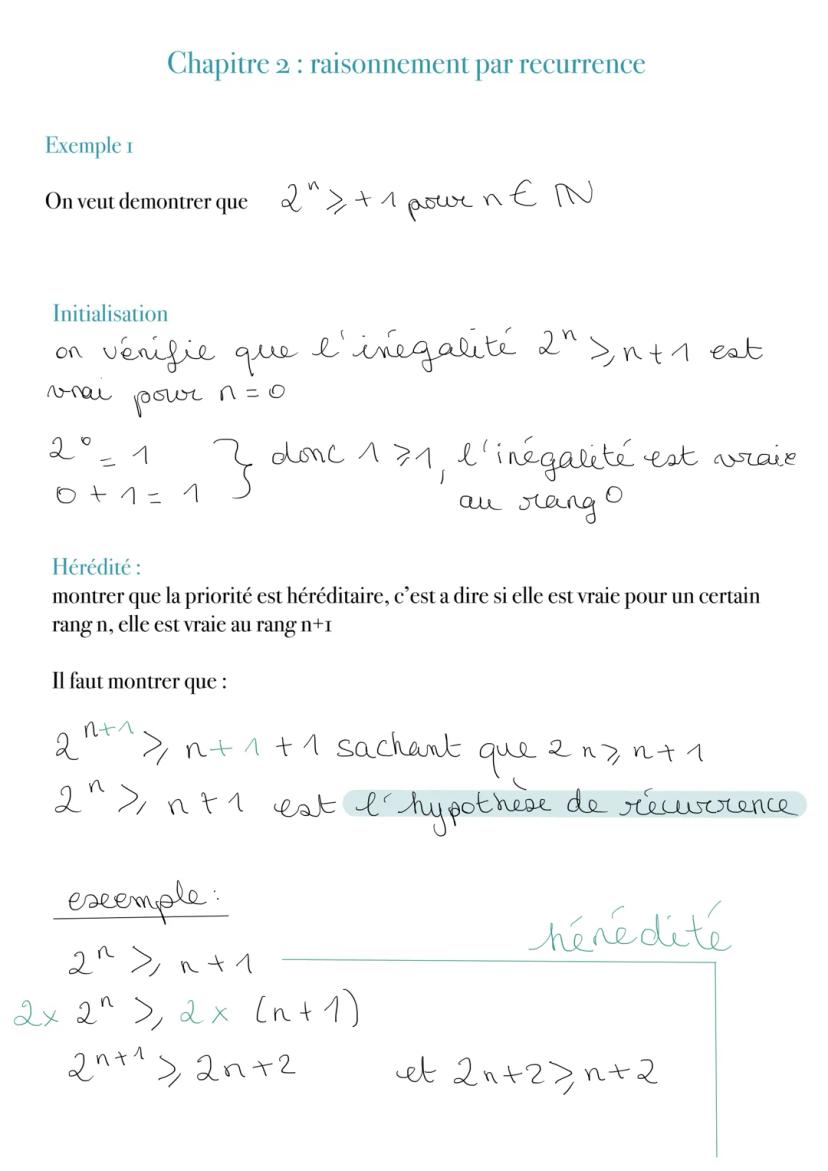 Chapitre 2 : raisonnement par recurrence
Exemple 1
On veut demontrer que 2ⁿ ⩾ + 1 pour n ∈ ℕ
Initialisation
on vérifie que l'inégalité 2ⁿ ⩾ n + 1 est
vrai pour n = 0
2⁰ = 1 } donc 1 ⩾ 1, l'inégalité est vraie
0 + 1 = 1 au rang 0
Hérédité :
montrer que la priorité est héréditaire, c’est a dire si elle est vraie pour un certain
rang n, elle est vraie au rang n+1
Il faut montrer que :
2ⁿ⁺¹ ⩾ n + 1 + 1 sachant que 2 n ⩾ n + 1
2ⁿ ⩾ n + 1 est l'hypothèse de récurrence
exemple :
hérédité
2ⁿ ⩾ n + 1
2 x 2ⁿ ⩾ 2 x (n + 1)
2ⁿ⁺¹ ⩾ 2n + 2 et 2n + 2 ⩾ n + 2